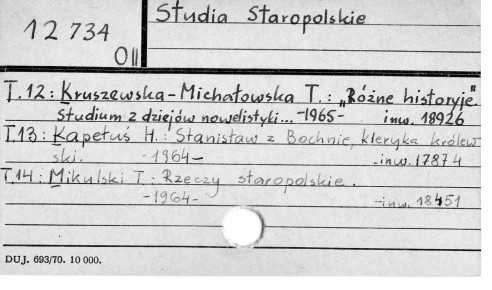 12 734
O11
Studia Staropolskie
T.12: Kruszewska-Michałowska T.: „Różne historyje".
Studium z dziejów nowelistyki... -1965- inw. 18926
T.13: Kapełuś H.: Stanisław z Bochnie, kleryka królew
ski. -1964- -inw. 17874
T.14: Mikulski T.: Rzeczy staropolskie.
-1964- -inw. 18451
DUJ. 693/70. 10 000.